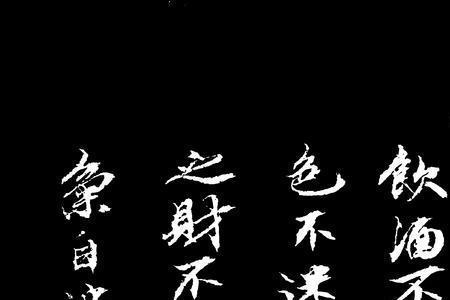 飲酒不
色不迷
之財不
氣自